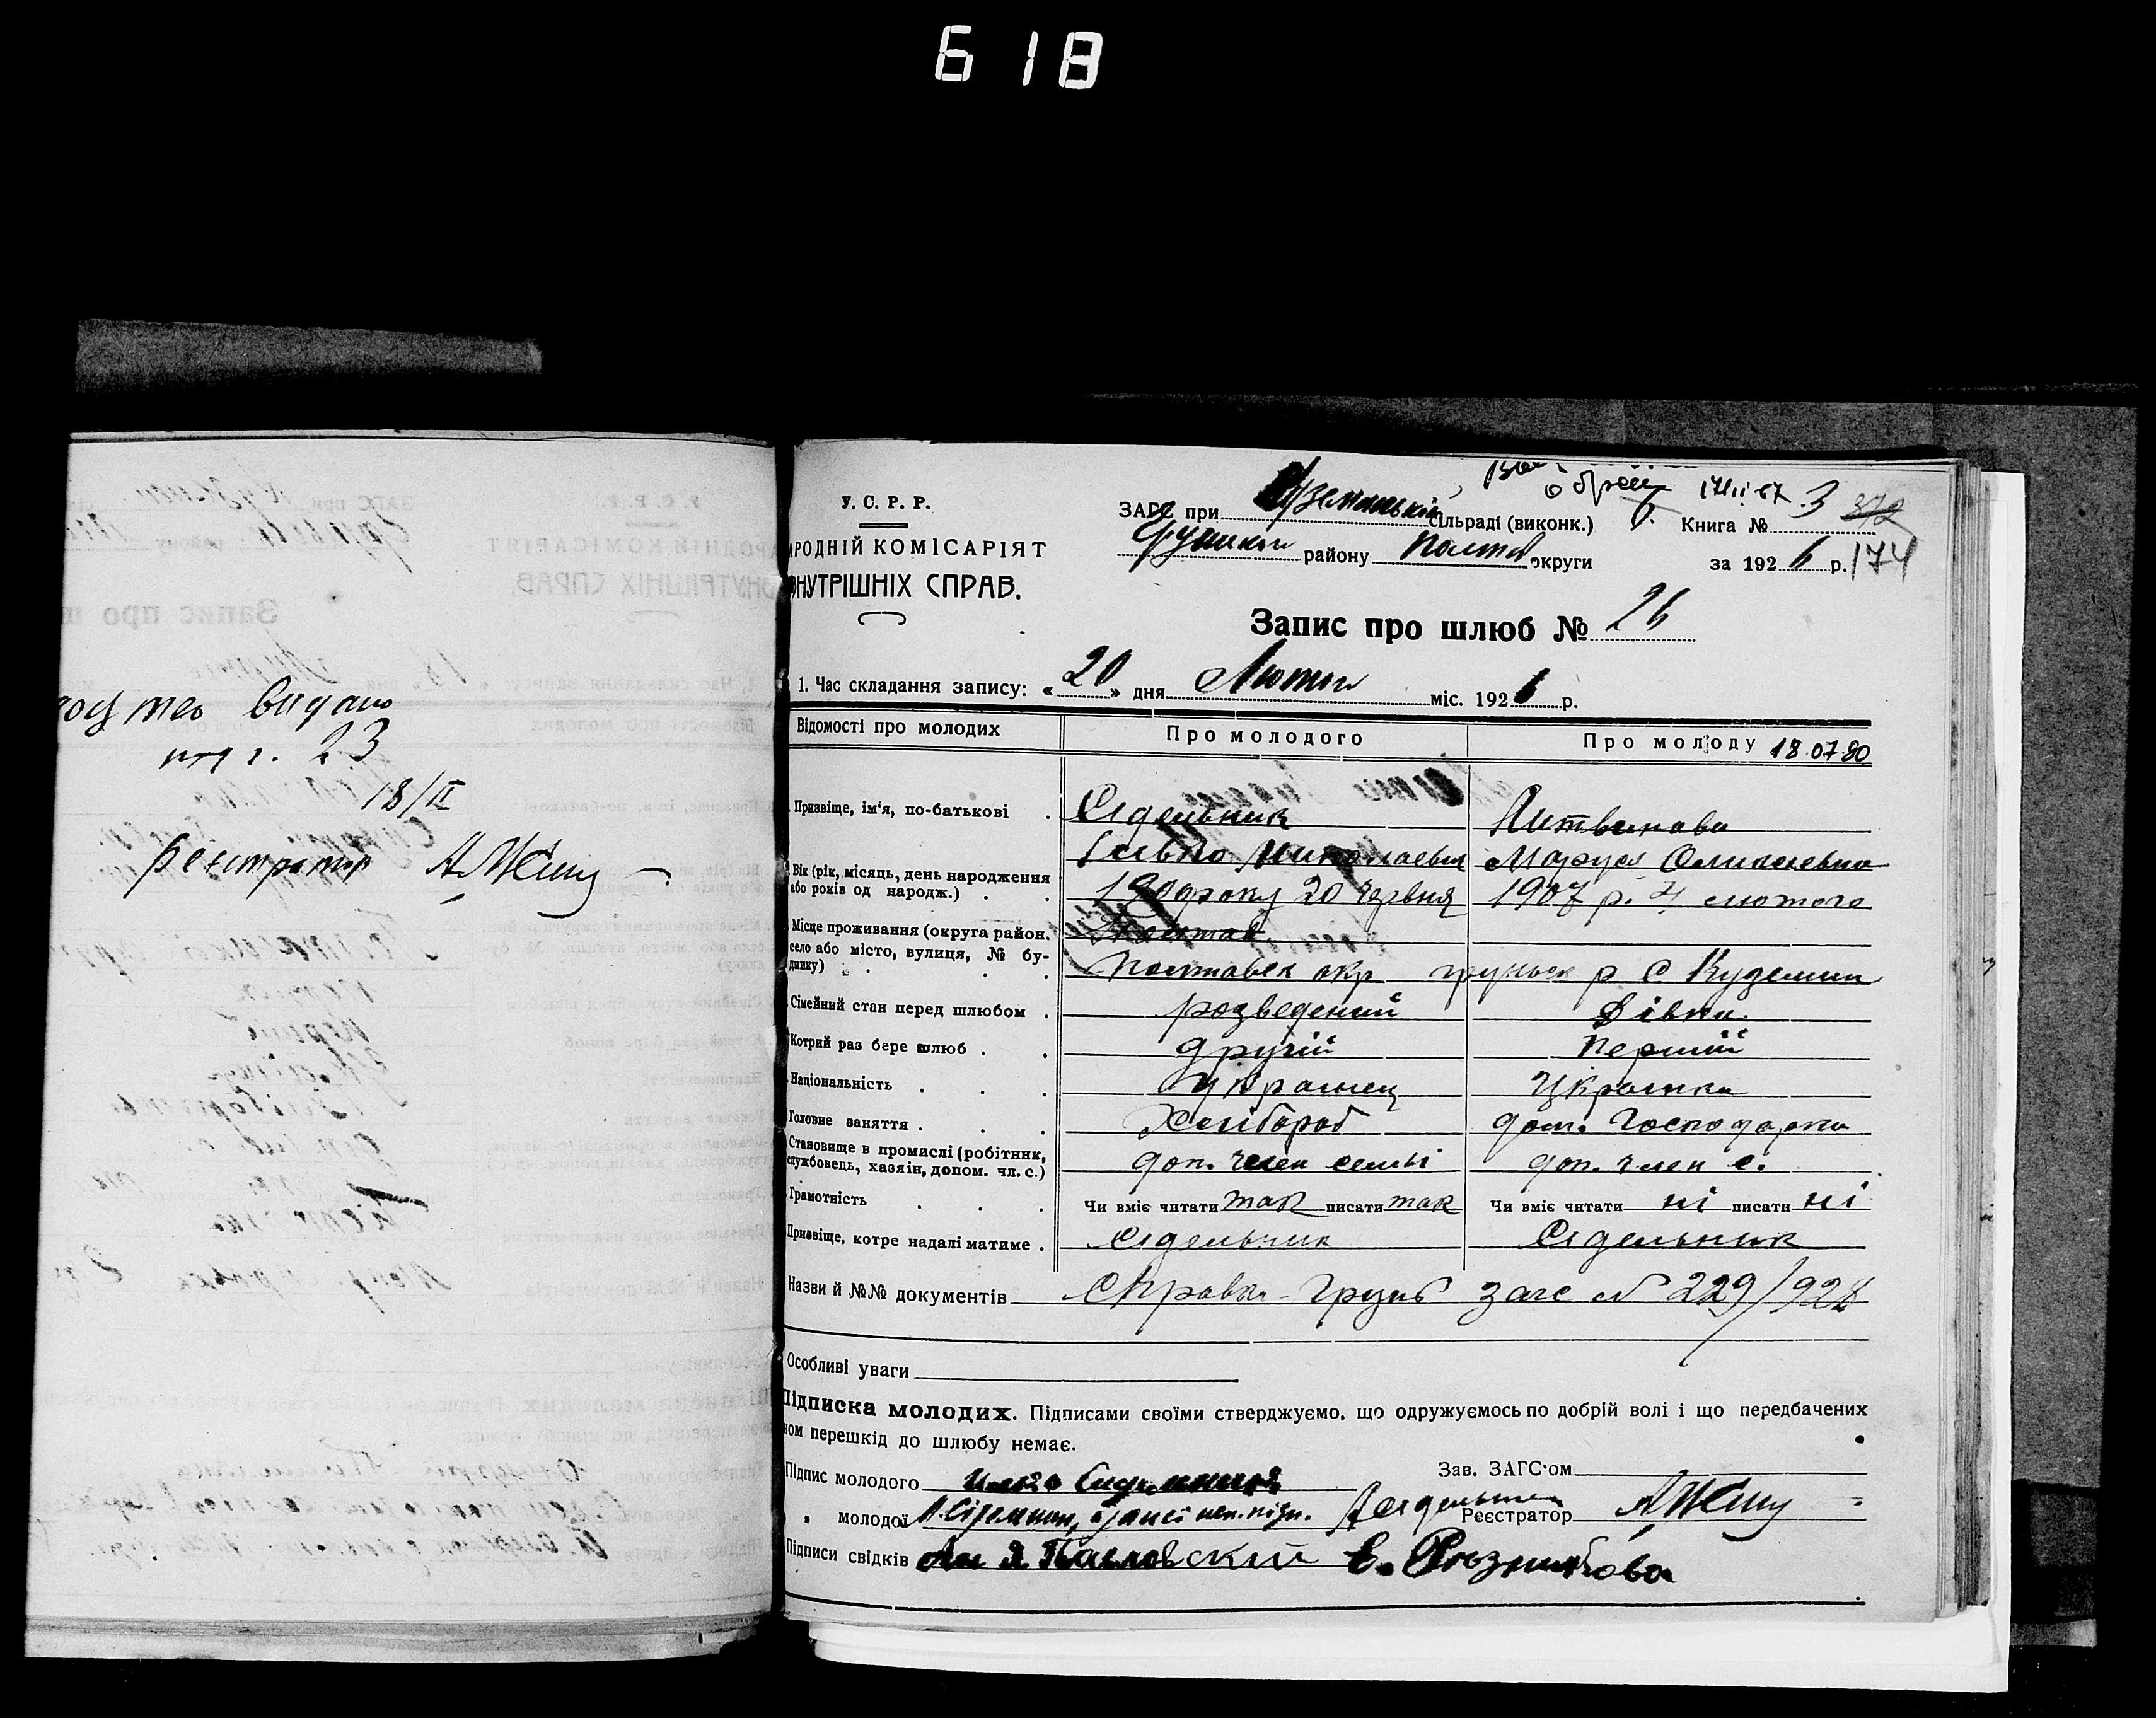 618
видано
18/II
реєстратор
У. С. Р. Р.
АРОДНІЙ КОМІСАРІЯТ
ВНУТРІШНІХ СПРАВ.
ЗАГС при сільраді (виконк.) Книга № 3 372
району Полтав округи за 1926 р. 174
Запис про шлюб № 26
1. Час складання запису: « 20 » дня Лютого міс. 1926 р.
Відомості про молодих Про молодого Про молоду 18.07.80
Призвіще, ім'я, по-батькові . Сідельник Литвинова
Николаевич Маруся Олексіевна
Вік (рік, місяць, день народження або років од народж.) . . року 20 червня 1907 р. 4 лютого
Місце проживання (округа район. село або місто, вулиця, № будинку) . . . Полтав
Полтавск окр груньск р с Куземин
Сімейний стан перед шлюбом . розведений Дівка
Котрий раз бере шлюб . . другій першій
Національність . . . Украінец Украінка
Головне заняття . . . Хлібороб дом. Господарка
Становище в промислі (робітник, службовець, хазяін, допом. чл. с.) доп. член семьі доп. член с.
Грамотність . . . Чи вміє читати так писати так Чи вміє читати ні писати ні
Призвіще, котре надалі матиме . Сідельник Сідельник
Назви й №№ документів Справка Грунь загс № 229/928
Особливі уваги
Підписка молодих. Підписами своїми стверджуємо, що одружуємось по добрій волі і що передбачених
ном перешкід до шлюбу немає.
Підпис молодого Зав. ЗАГС'ом
„ молодої Реєстратор
Підписи свідків Павловский Е. Рѣзникова